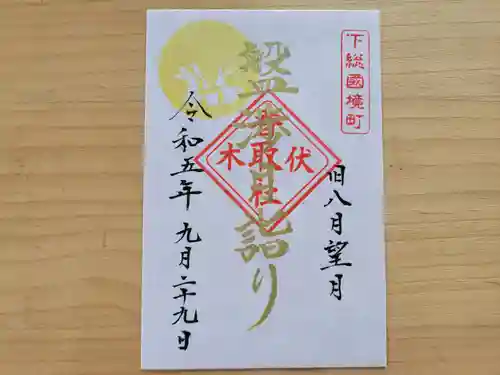 下総國境町
旧八月望月
盤 月詣り
伏木
香取社
令和五年 九月二十九日